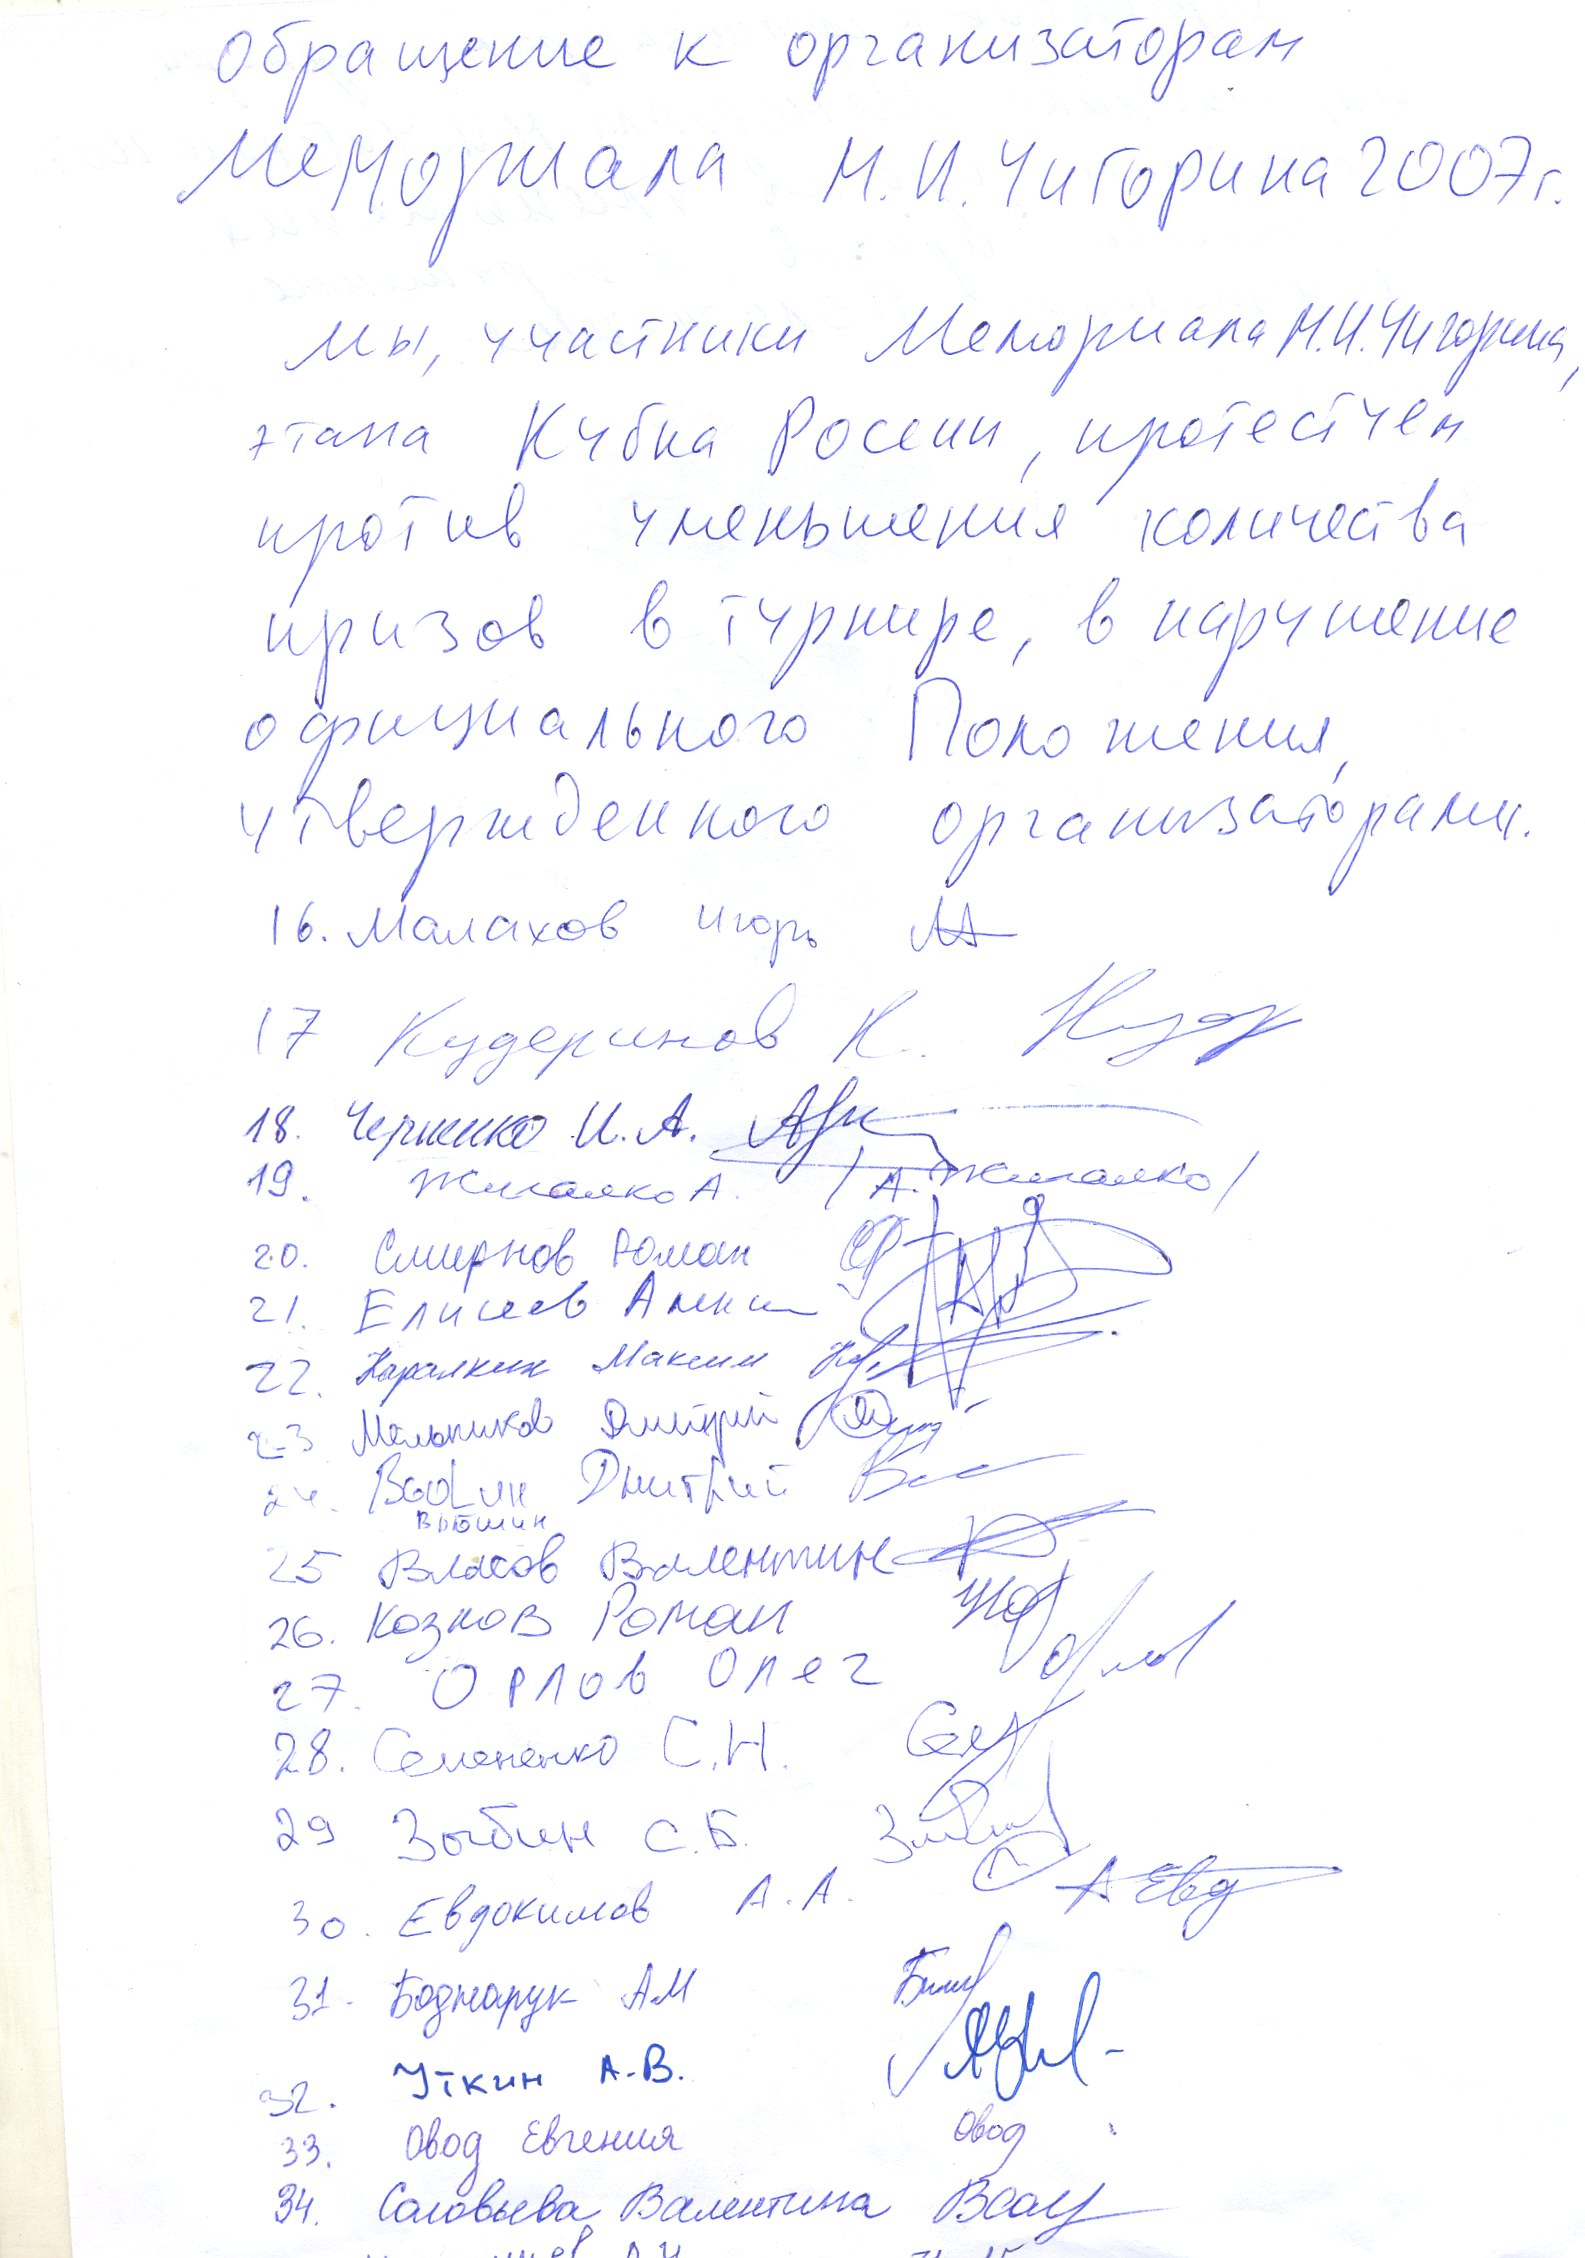 Обращение к организаторам
Мемориала М.И.Чигорина 2007г.
Мы, участники Мемориала М.И.Чигорина,
этапа Кубка России, протестуем
против уменьшения количества
призов в турнире, в нарушение
официального Положения,
утвержденного организаторами.
16. Малахов Игорь
17 Кудеринов К.
18. И.А.
19. Жигалко А. /А. Жигалко/
20. Смирнов Роман
21. Елисеев
22. Максим
23 Мельников Дмитрий
24. Дмитрий
25 Власов Валентин
26. Козлов Роман
27. Орлов Олег
28. Семененко С.Н.
29 Зыбин С.Б.
30. Евдокимов А.А.
31. Боднарук АМ
32. Уткин А.В.
33. Овод Евгения Овод
34. Соловьева Валентина